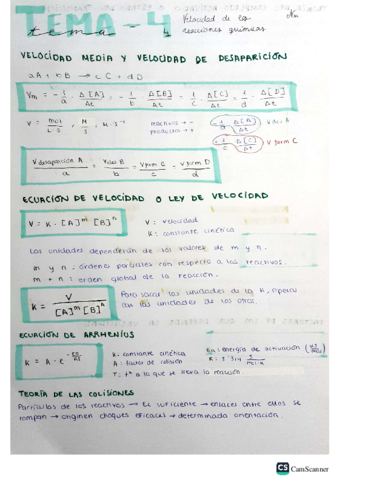 TEMA - 4
tema 4
Velocidad de las
reacciones químicas
VELOCIDAD MEDIA Y VELOCIDAD DE DESAPARICIÓN
aA + bB → cC + dD
Vm = - 1/a · Δ[A]/Δt = - 1/b · Δ[B]/Δt = 1/c · Δ[C]/Δt = 1/d · Δ[D]/Δt
V = mol/L·s ; M/s ; M·s⁻¹
reactivos → -
productos → +
V des A
V form C
V desaparición A/a = V des B/b = V form C/c = V form D/d
ECUACIÓN DE VELOCIDAD O LEY DE VELOCIDAD
V = K · [A]ᵐ [B]ⁿ
V: velocidad
K: constante cinética
Las unidades dependerán de los valores de m y n.
m y n: órdenes parciales con respecto a los reactivos.
m + n: orden global de la reacción.
K = V/[A]ᵐ [B]ⁿ
Para sacar las unidades de la K, operar
con las unidades de los otros.
ECUACIÓN DE ARRHENIUS
K = A · e^(-Ea/RT)
K: constante cinética
A: factor de colisión
T: tª a la que se lleva la reacción.
Ea: energía de activación
TEORÍA DE LAS COLISIONES
Partículas de los reactivos → Ec suficiente → enlaces entre ellos se
rompan → originen choques eficaces → determinada orientación.
CS CamScanner